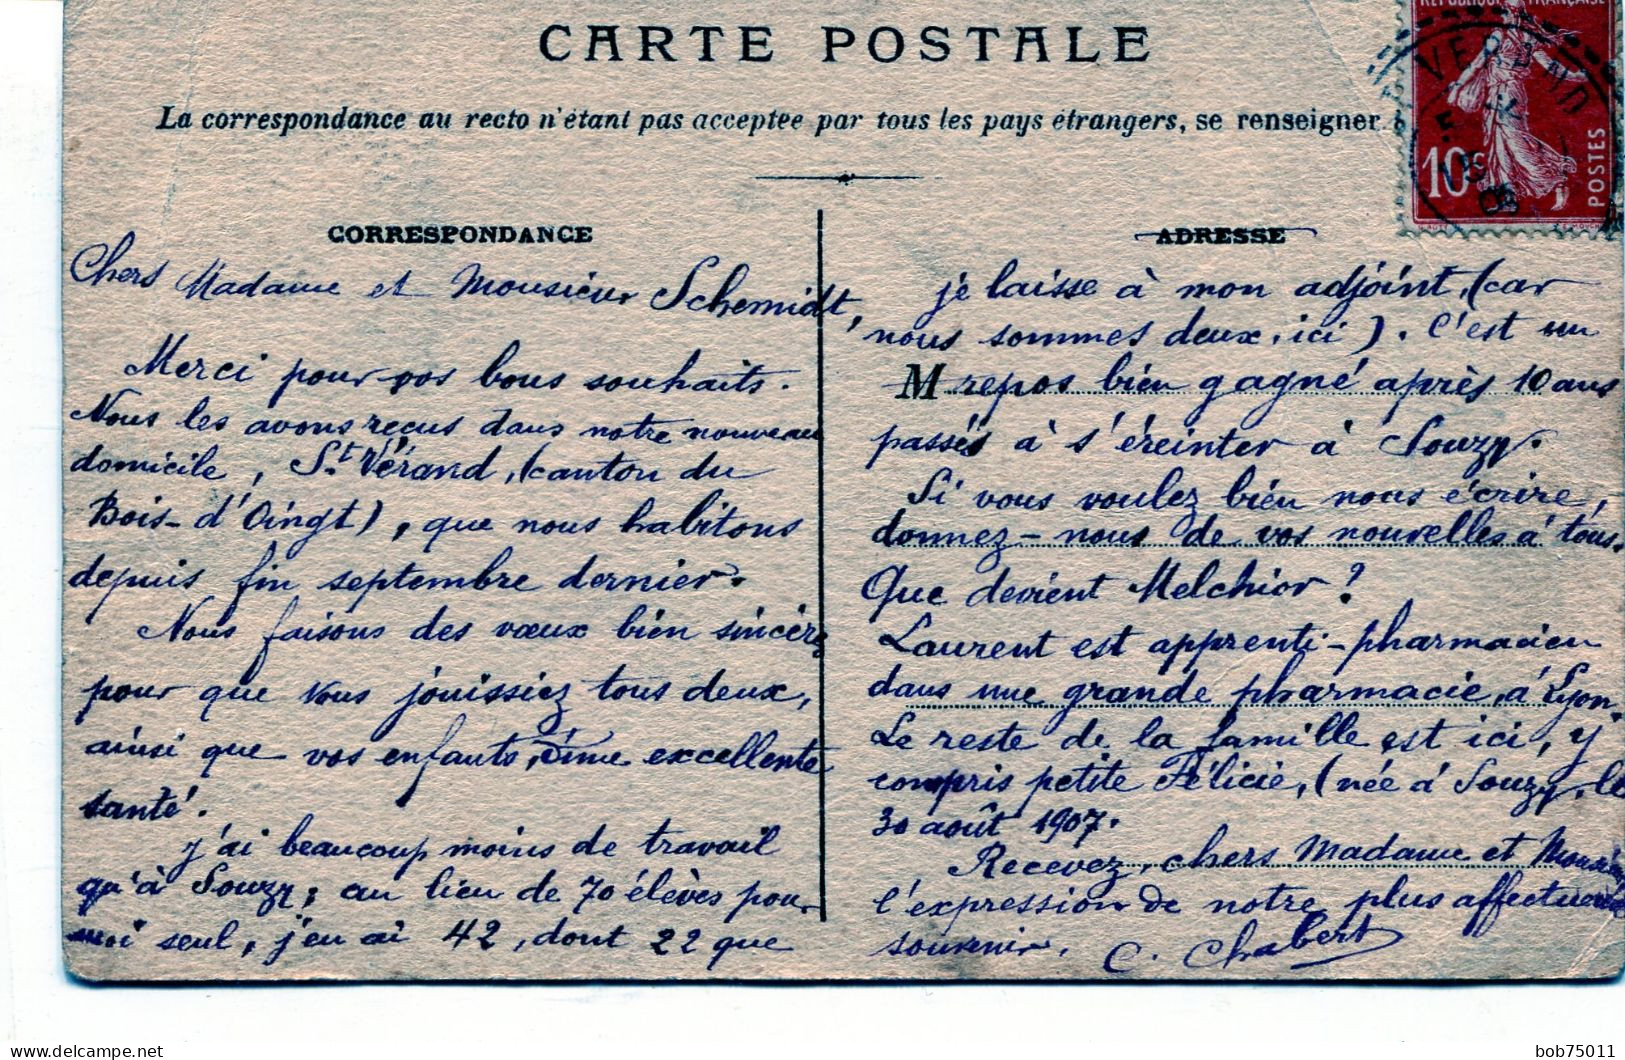 CARTE POSTALE
La correspondance au recto n'étant pas acceptée par tous les pays étrangers, se renseigner
RÉPUBLIQUE FRANÇAISE
10c
POSTES
CORRESPONDANCE
Chers Madame et Monsieur Schemidt,
Merci pour vos bons souhaits.
Nous les avons reçus dans notre nouveau
domicile, St Vérand, (canton du
Bois-d'Oingt), que nous habitons
depuis fin septembre dernier.
Nous faisons des vœux bien sincères
pour que vous jouissiez tous deux,
ainsi que vos enfants, d'une excellente
santé.
J'ai beaucoup moins de travail
qu'à Souzy; au lieu de 70 élèves pour
moi seul, j'en ai 42, dont 22 que
ADRESSE
je laisse à mon adjoint, (car
nous sommes deux, ici). C'est un
M repos bien gagné après 10 ans
passés à s'éreinter à Souzy.
Si vous voulez bien nous écrire,
donnez-nous de vos nouvelles à tous.
Que devient Melchior?
Laurent est apprenti-pharmacien
dans une grande pharmacie, à Lyon.
Le reste de la famille est ici, y
compris petite Félicie, (née à Souzy, le
30 août 1907.
Recevez, chers Madame et Monsieur
l'expression de notre plus affectueux
souvenir. C. Chabert
bob75011